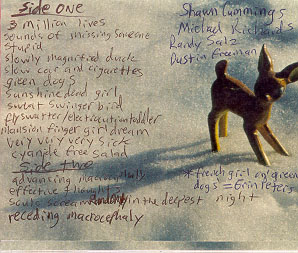 Side One
3 million lives
sounds of missing someone
stupid
slowly magnified duck
slow car and cigarettes
green dogs
sunshine dead girl
sweat swinger bird
flyswatter/electrocution toddler
mansion finger girl dream
very very very sick
cyanide free salad
Side two
advancing macrocephaly
effective thought
scute scream Randomly in the deepest night
receding macrocephaly
Shawn Cummings
Michael Richards
Randy Salz
Dustin Freeman
*french girl on "green
dogs" = Erin Peters